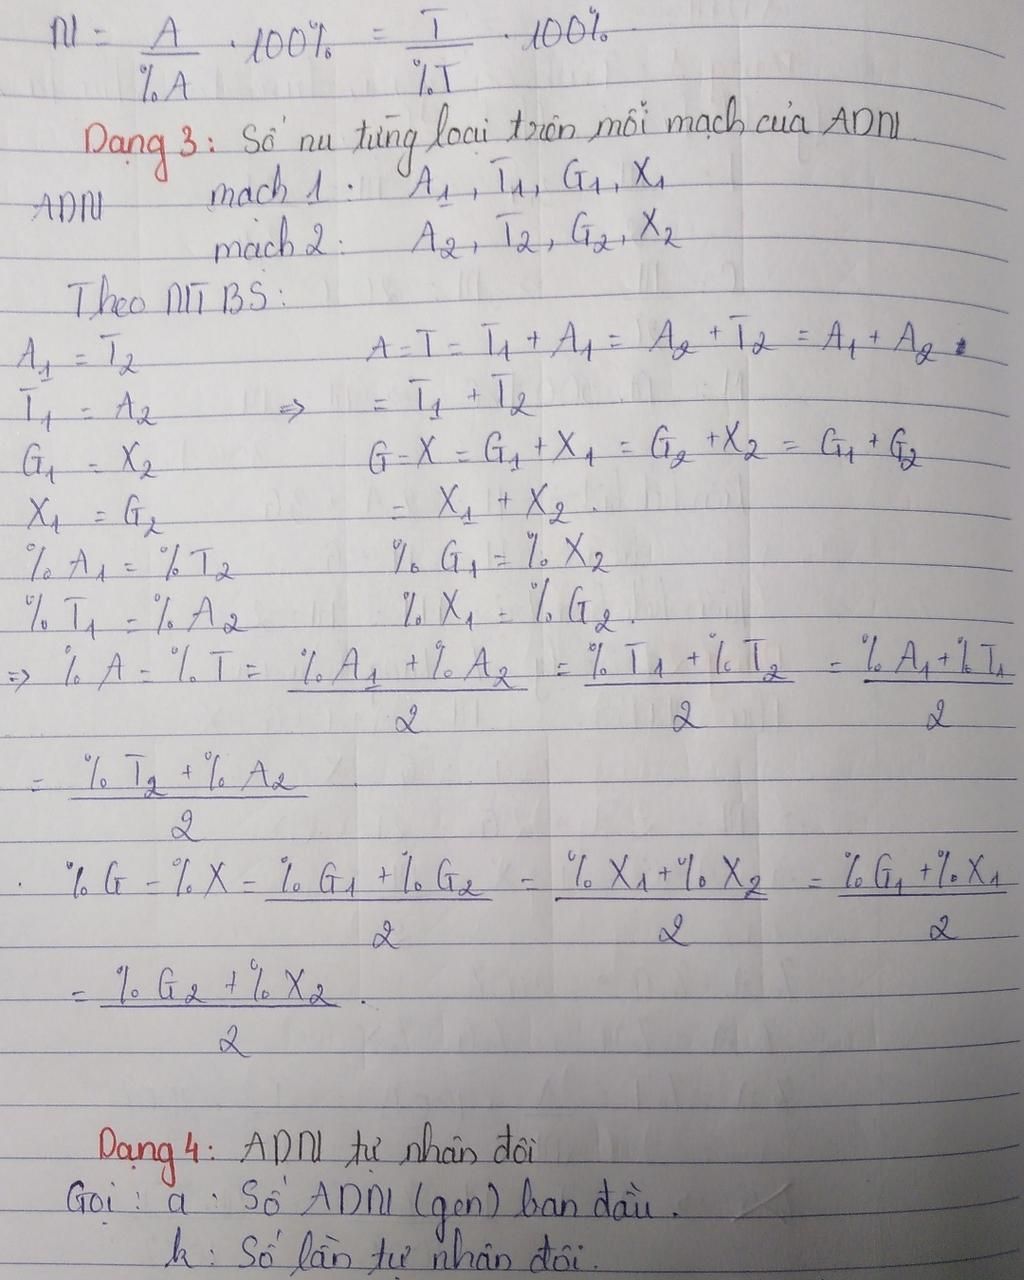 N = A/%A . 100% = T/%T . 100%
Dạng 3: Số nu từng loại trên mỗi mạch của ADN
ADN mạch 1: A₁, T₁, G₁, X₁
mạch 2: A₂, T₂, G₂, X₂
Theo NTBS:
A₁ = T₂ A = T = T₁ + A₁ = A₂ + T₂ = A₁ + A₂
T₁ = A₂ => = T₁ + T₂
G₁ = X₂ G = X = G₁ + X₁ = G₂ + X₂ = G₁ + G₂
X₁ = G₂ = X₁ + X₂.
%A₁ = %T₂ %G₁ = %X₂
%T₁ = %A₂ %X₁ = %G₂.
=> %A = %T = (%A₁ + %A₂)/2 = (%T₁ + %T₂)/2 = (%A₁ + %T₁)/2
= (%T₂ + %A₂)/2
%G = %X = (%G₁ + %G₂)/2 = (%X₁ + %X₂)/2 = (%G₁ + %X₁)/2
= (%G₂ + %X₂)/2.
Dạng 4: ADN tự nhân đôi
Gọi: a: Số ADN (gen) ban đầu.
k: Số lần tự nhân đôi.